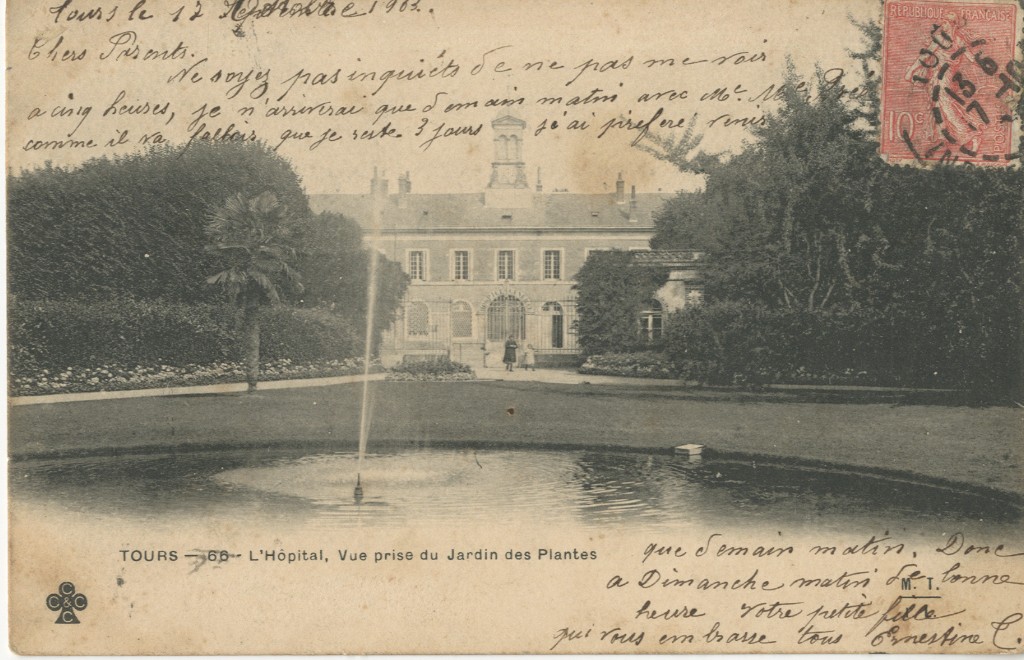 Tours le 17 1903.
Chers Parents.
Ne soyez pas inquiets de ne pas me voir
a cinq heures, je n'arriverai que demain matin avec
comme il va falloir que je reste 3 jours j'ai préféré venir
REPUBLIQUE FRANÇAISE
10c
TOURS
13
17
TOURS — 66 - L'Hôpital, Vue prise du Jardin des Plantes
que demain matin. Donc
a Dimanche matin de bonne
M. T.
heure Votre petite fille
qui vous embrasse tous Ernestine C.
C C & C C